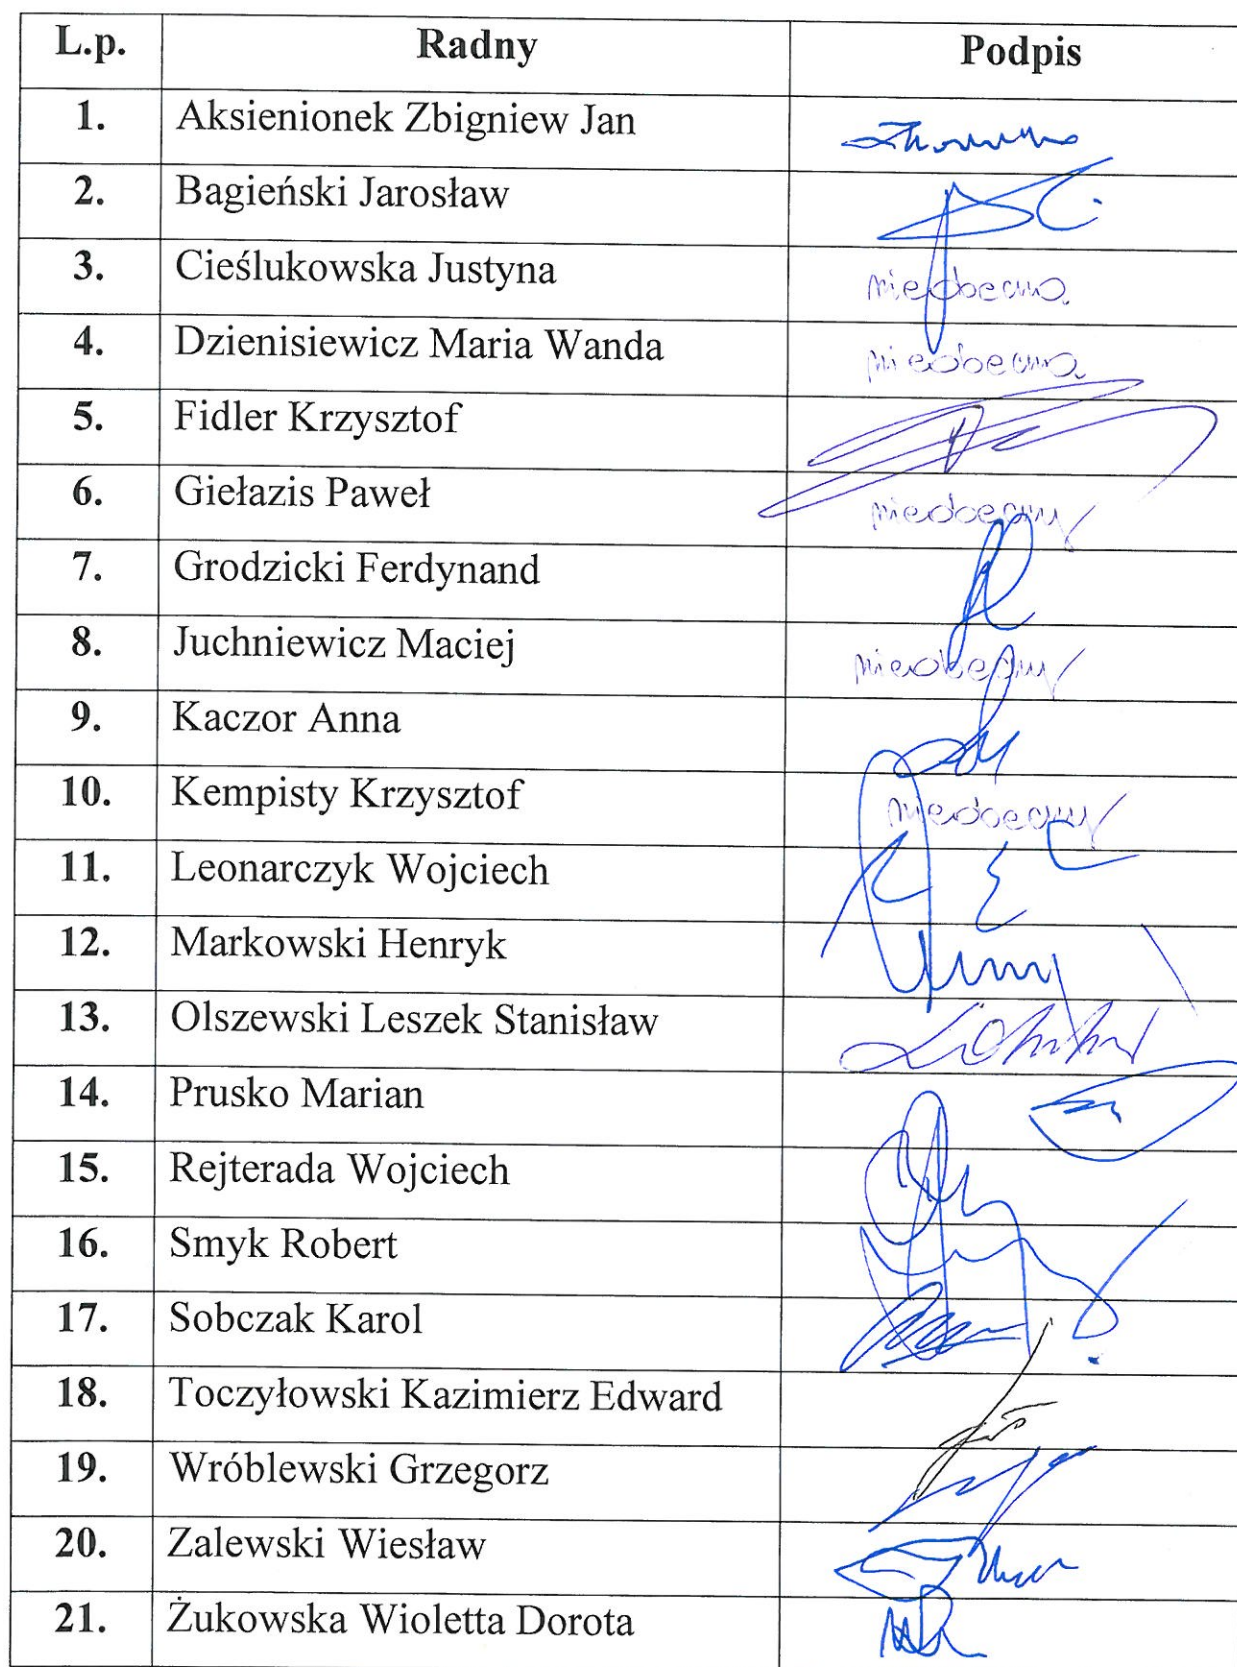 L.p. Radny Podpis
1. Aksienionek Zbigniew Jan
2. Bagieński Jarosław
3. Cieślukowska Justyna nieobecna
4. Dzienisiewicz Maria Wanda nieobecna
5. Fidler Krzysztof
6. Giełazis Paweł nieobecny
7. Grodzicki Ferdynand
8. Juchniewicz Maciej nieobecny
9. Kaczor Anna
10. Kempisty Krzysztof nieobecny
11. Leonarczyk Wojciech
12. Markowski Henryk
13. Olszewski Leszek Stanisław
14. Prusko Marian
15. Rejterada Wojciech
16. Smyk Robert
17. Sobczak Karol
18. Toczyłowski Kazimierz Edward
19. Wróblewski Grzegorz
20. Zalewski Wiesław
21. Żukowska Wioletta Dorota